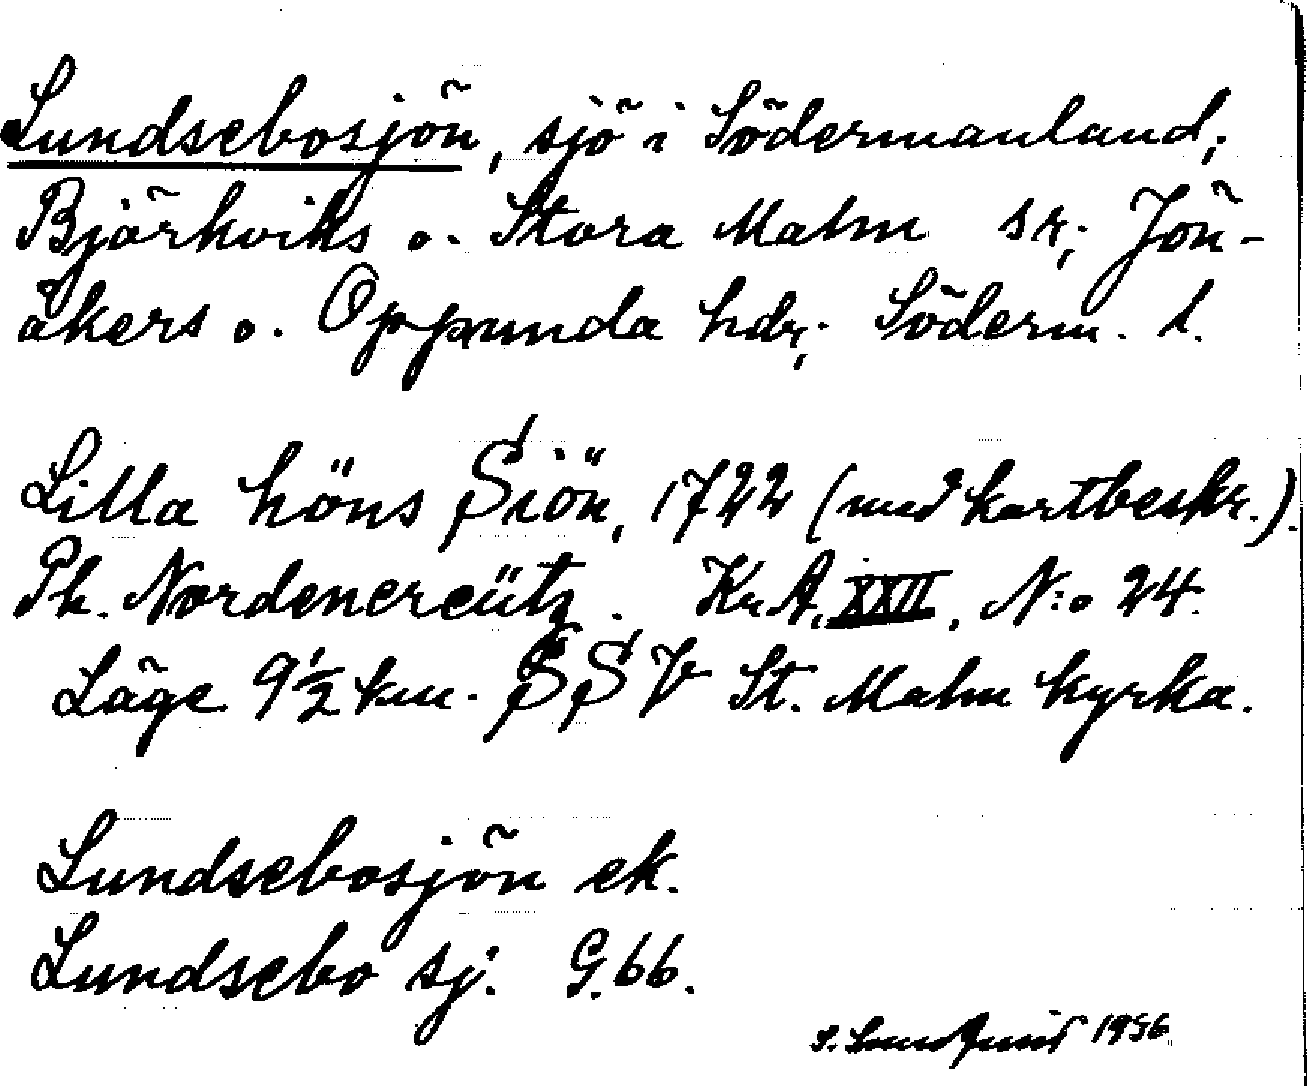 Lundsebosjön, sjö i Södermanland;
Björkviks o. Stora Malm sr; Jön-
åkers o. Oppunda hdr; Söderm. l.
Lilla höns Siön, 1722 (med kartbeskr.).
Ph. Nordenereütz. Kr.A. XXII, N:o 24.
Läge 9½ km. SSV St. Malm kyrka.
Lundsebosjön ek.
Lundsebo sj. G.66.
1956